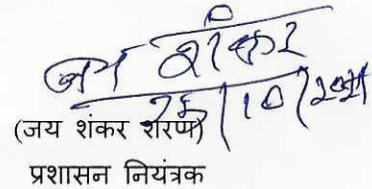 जय शंकर
26/10/2021
(जय शंकर शरण)
प्रशासन नियंत्रक